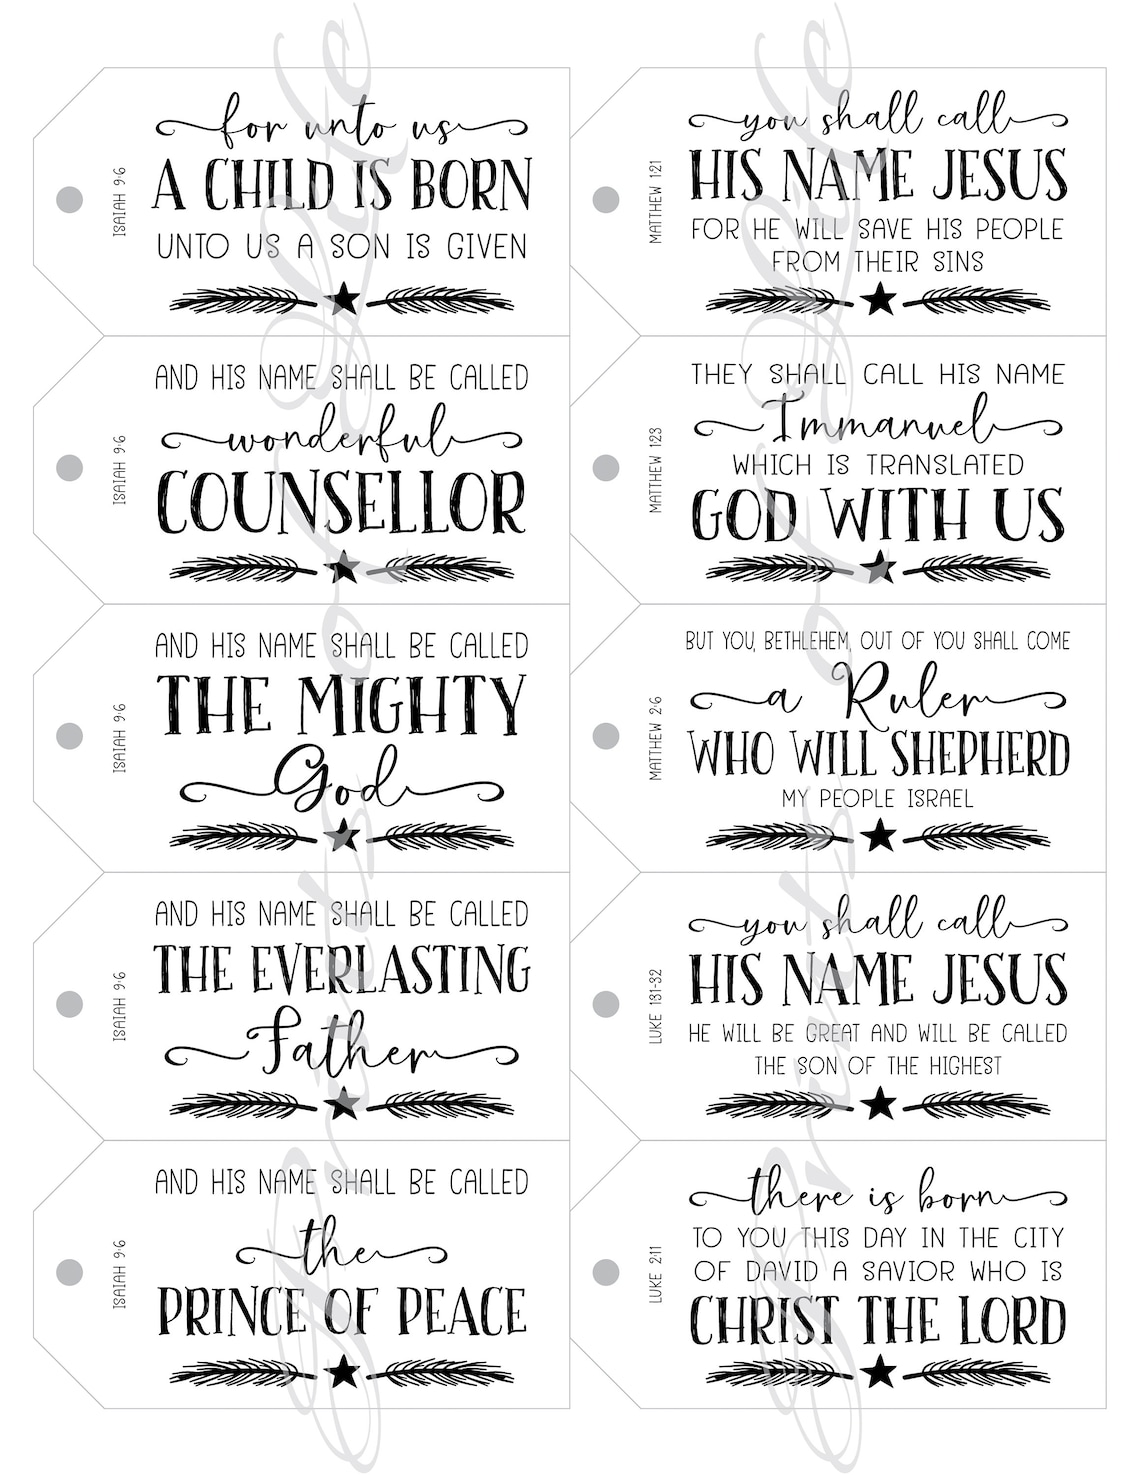 ISAIAH 9:6
for unto us
A CHILD IS BORN
UNTO US A SON IS GIVEN
MATTHEW 1:21
you shall call
HIS NAME JESUS
FOR HE WILL SAVE HIS PEOPLE
FROM THEIR SINS
ISAIAH 9:6
AND HIS NAME SHALL BE CALLED
wonderful
COUNSELLOR
MATTHEW 1:23
THEY SHALL CALL HIS NAME
Immanuel
WHICH IS TRANSLATED
GOD WITH US
ISAIAH 9:6
AND HIS NAME SHALL BE CALLED
THE MIGHTY
God
MATTHEW 2:6
BUT YOU, BETHLEHEM, OUT OF YOU SHALL COME
a Ruler
WHO WILL SHEPHERD
MY PEOPLE ISRAEL
ISAIAH 9:6
AND HIS NAME SHALL BE CALLED
THE EVERLASTING
Father
LUKE 1:31-32
you shall call
HIS NAME JESUS
HE WILL BE GREAT AND WILL BE CALLED
THE SON OF THE HIGHEST
ISAIAH 9:6
AND HIS NAME SHALL BE CALLED
the
PRINCE OF PEACE
LUKE 2:11
there is born
TO YOU THIS DAY IN THE CITY
OF DAVID A SAVIOR WHO IS
CHRIST THE LORD
Prints of Life
Prints of Life